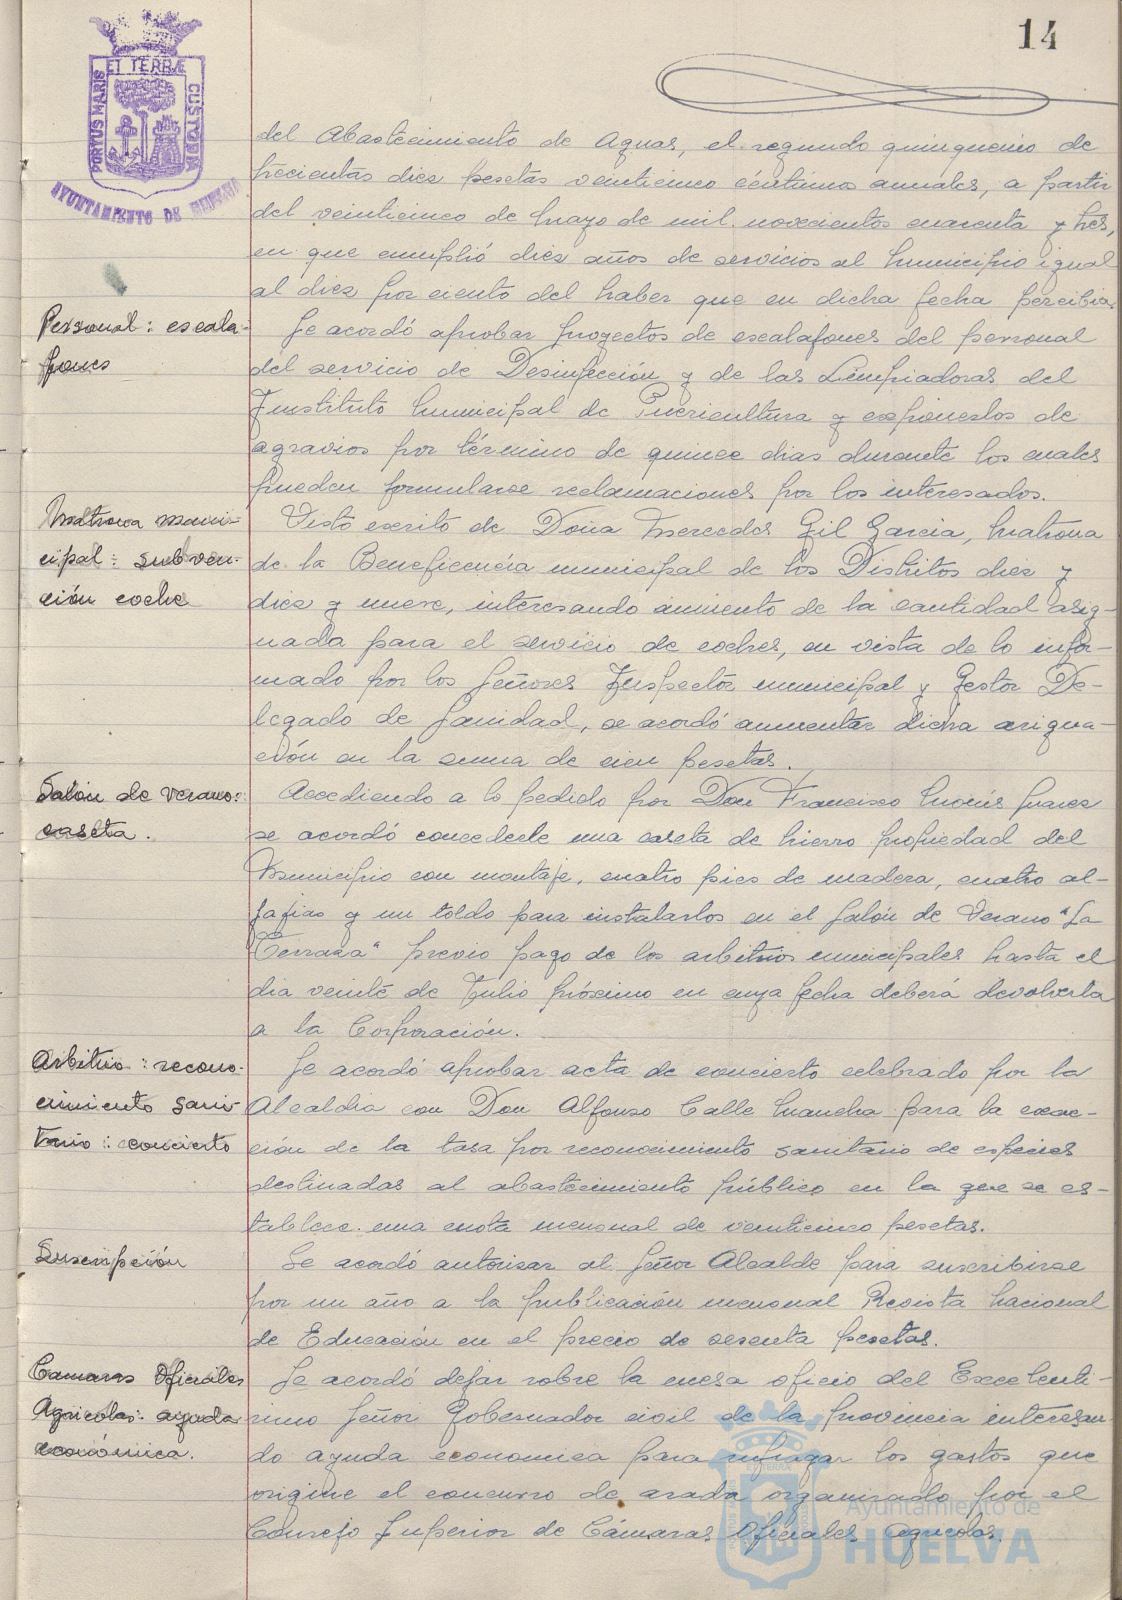 14
PORTUS MARIS ET TERRÆ CUSTODIA
AYUNTAMIENTO DE HUELVA
del Abastecimiento de Aguas, el segundo quinquenio de
trecientas diez pesetas veinticinco céntimos anuales, a partir
del veinticinco de Mayo de mil novecientos cuarenta y tres,
en que cumplió diez años de servicios al Municipio igual
al diez por ciento del haber que en dicha fecha percibia.
Personal: escala-
fones
Se acordó aprobar proyectos de escalafones del personal
del servicio de Desinfección y de las Limpiadoras del
Instituto Municipal de Puericultura y exponerlos de
agravios por término de quince dias durante los cuales
pueden formularse reclamaciones por los interesados.
Matrona muni-
cipal: subven-
ción coche
Visto escrito de Doña Mercedes Gil Garcia, Matrona
de la Beneficencia municipal de los Distritos diez y
diez y nueve, interesando aumento de la cantidad asig-
nada para el servicio de coches, en vista de lo infor-
mado por los Señores Inspector municipal y Gestor De-
legado de Sanidad, se acordó aumentar dicha asigna-
ción en la suma de cien pesetas.
Salón de Verano:
caseta.
Accediendo a lo pedido por Don Francisco Suarez
se acordó concederle una caseta de hierro propiedad del
Municipio con montaje, cuatro pies de madera, cuatro al-
fajias y un toldo para instalarlos en el Salón de Verano "La
Terraza" previo pago de los arbitrios municipales hasta el
dia veinte de Julio próximo en cuya fecha deberá devolverla
a la Corporación.
Arbitrio: recono-
cimiento sani-
tario: concierto
Se acordó aprobar acta de concierto celebrado por la
Alcaldia con Don Alfonso Calle Mancha para la exac-
ción de la tasa por reconocimiento sanitario de especies
destinadas al abastecimiento público en la que se es-
tablece una cuota mensual de veinticinco pesetas.
Suscripción
Se acordó autorizar al Señor Alcalde para suscribirse
por un año a la publicación mensual Revista Nacional
de Educación en el precio de sesenta pesetas.
Camaras Oficiales
Agricolas: ayuda
económica.
Se acordó dejar sobre la mesa oficio del Excelenti-
simo Señor Gobernador civil de la provincia interesan-
do ayuda economica para sufragar los gastos que
origine el concurso de arada organizado por el
Consejo Superior de Cámaras Oficiales Agricolas.
Ayuntamiento de
HUELVA